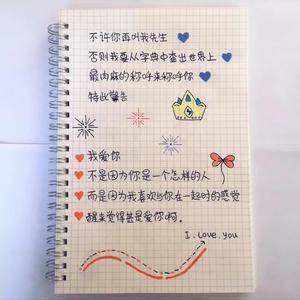 不许你再叫我先生
否则我要从字典中查出世界上
最肉麻的称呼来称呼你
特此警告
我爱你
不是因为你是一个怎样的人
而是因为我喜欢与你在一起时的感觉
醒来觉得甚是爱你啊。
I.Love.you